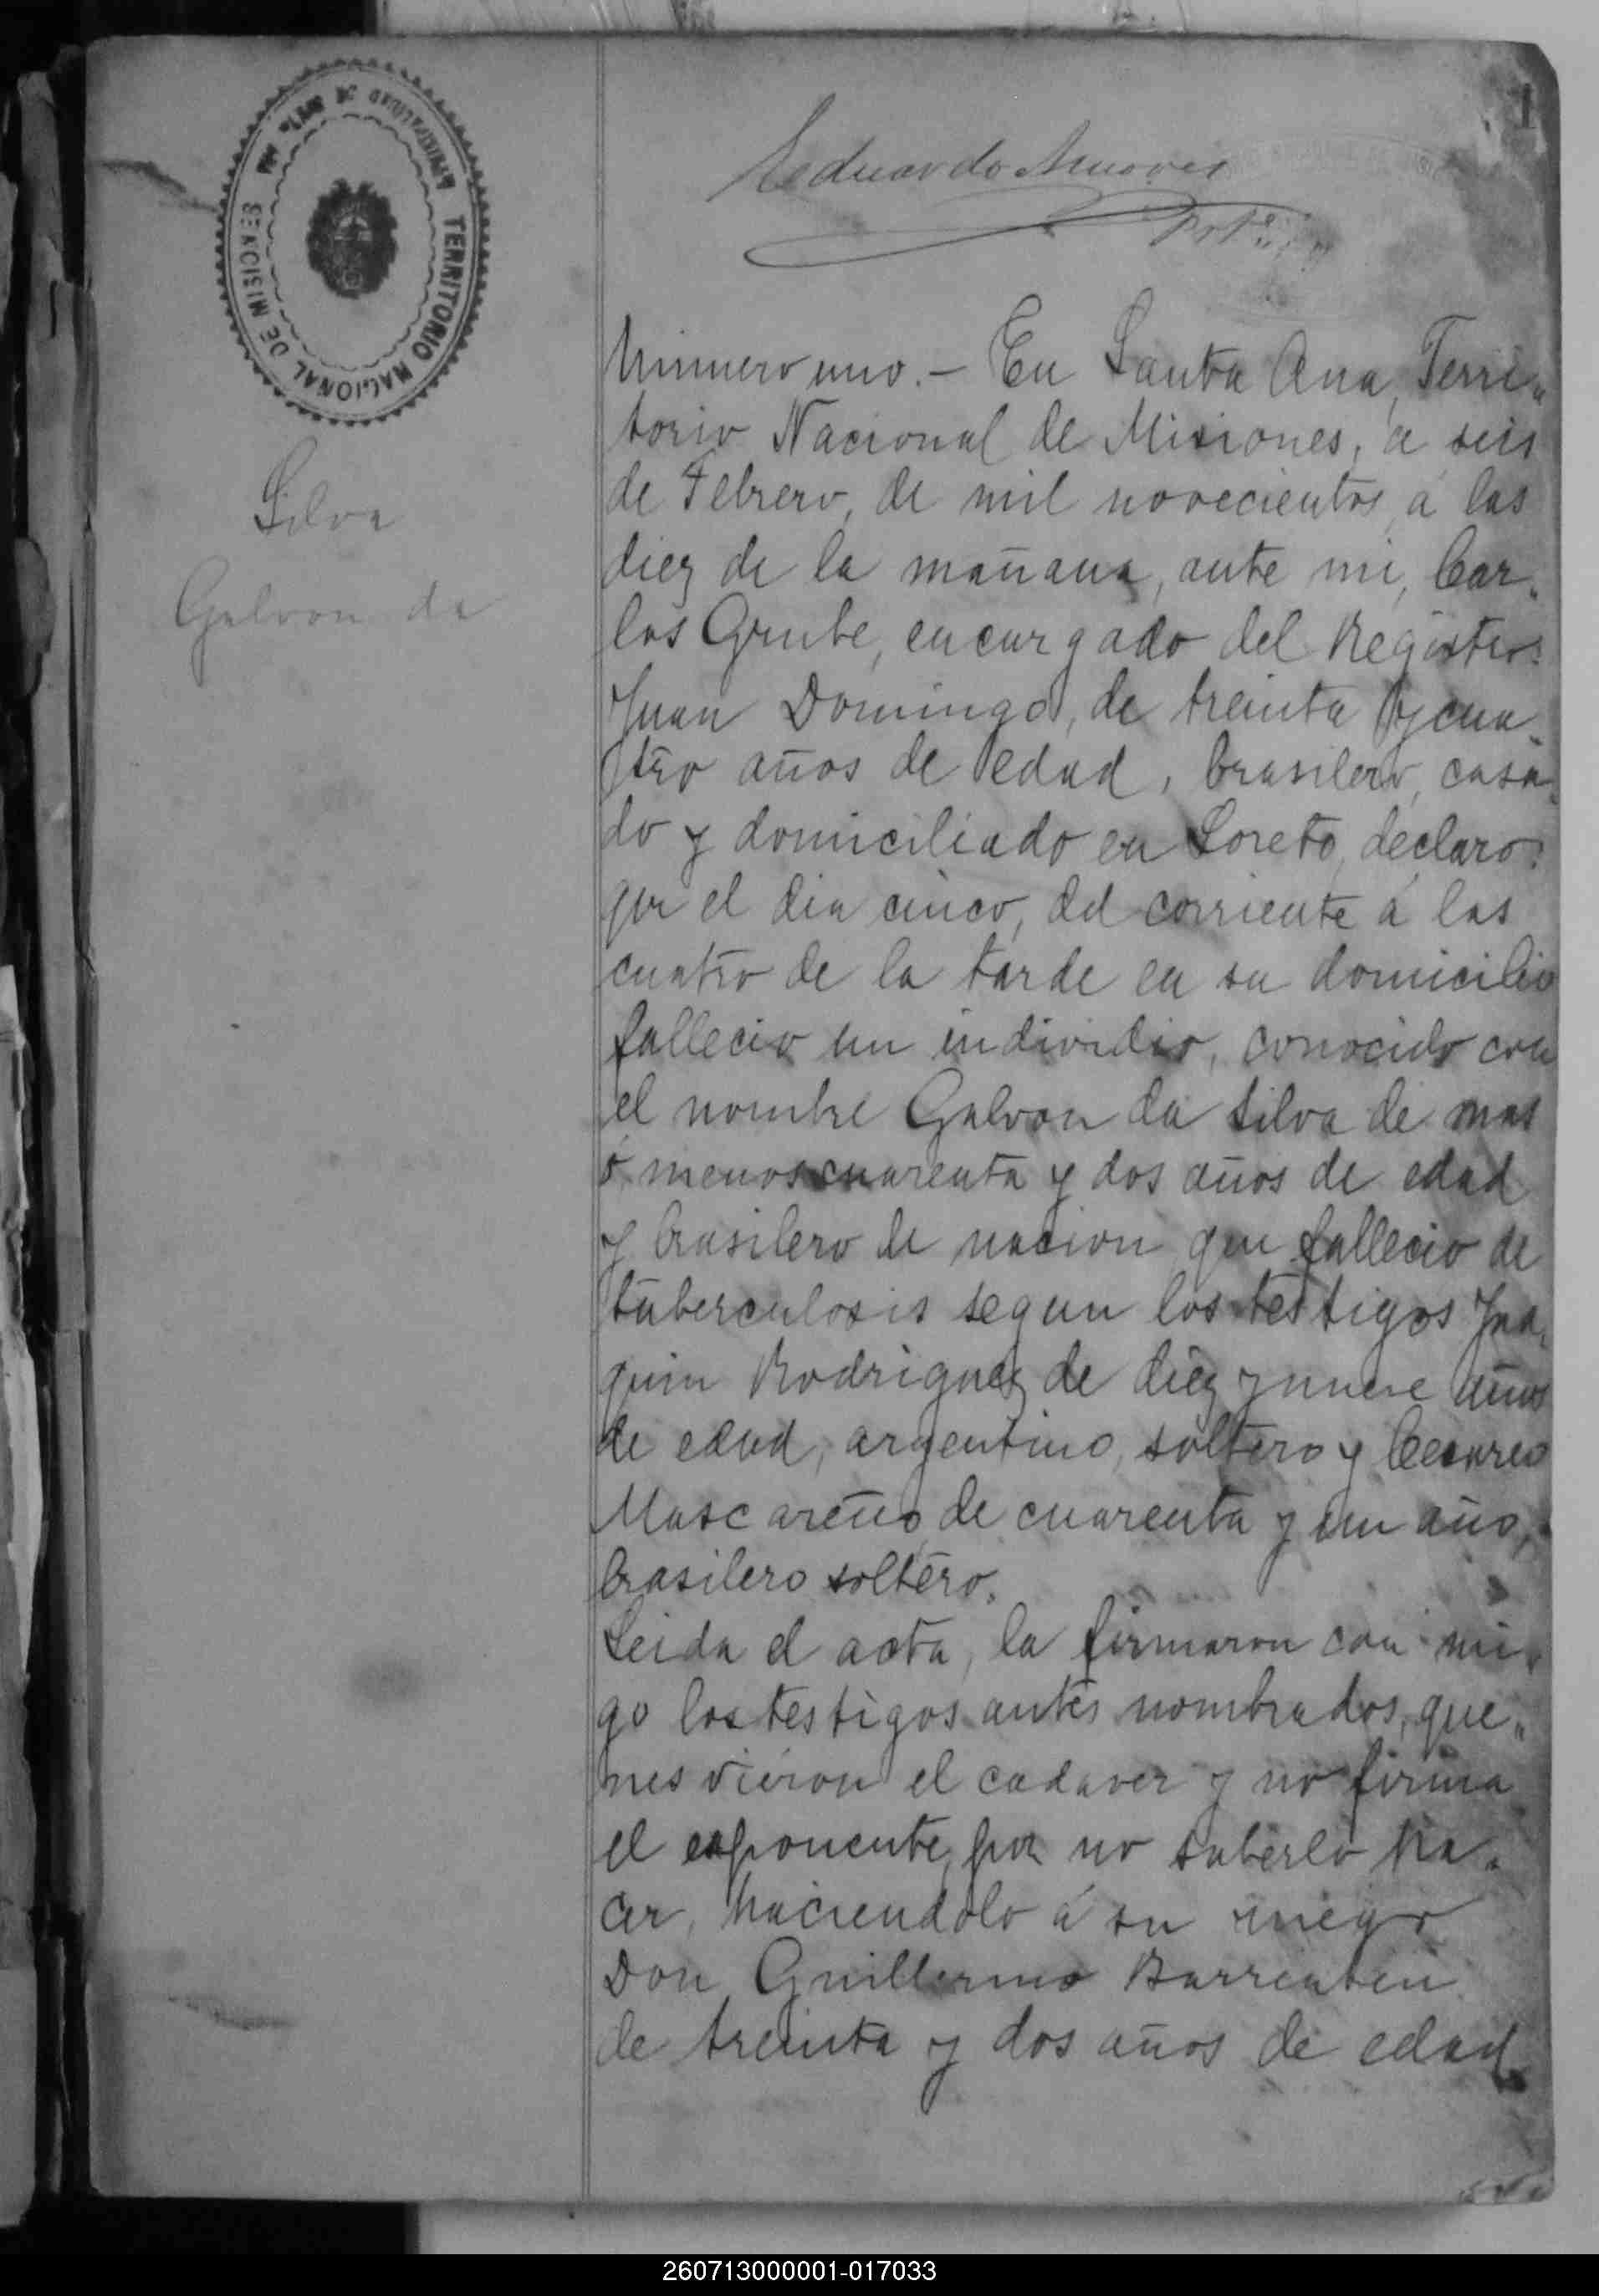 1
Eduardo
TERRITORIO NACIONAL DE MISIONES
Silva
Galvon da
Número uno.- En Santa Ana, Terri„
torio Nacional de Misiones, a seis
de Febrero, de mil novecientos, á las
diez de la mañana, ante mi, Car„
los Grube, encargado del Registro:
Juan Domingo, de treinta y cua„
tro años de edad, brasilero, casa„
do y domiciliado en Loreto, declaro:
que el dia cinco, del corriente á las
cuatro de la tarde en su domicilio
fallecio un individio, conocido con
el nombre Galvon da Silva de mas
ó menos cuarenta y dos años de edad
y brasilero de nacion que fallecio de
tuberculosis segun los testigos Joa„
quin Rodriguez de diez y nueve años
de edad, argentino, soltero y Cesareo
Mascareño, de cuarenta y un año,
brasilero soltero.
Leida el acta, la firmaron con mi„
go los testigos antes nombrados, quie„
nes vieron el cadaver y no firma
el exponente, por no saberlo ha„
cer, haciendolo á su ruego
Don Guillermo
de treinta y dos años de edad
260713000001-017033